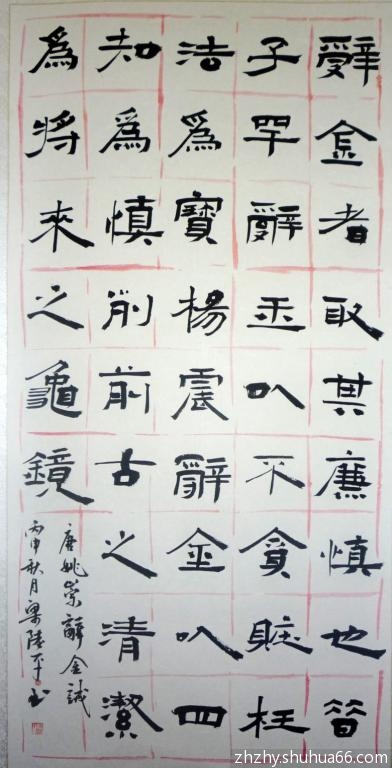 辤金者取其廉慎也昔
子罕辭玉以不貪賍枉
法爲寶楊震辭金以四
知爲慎列前古之清潔
爲將來之龜鏡
唐姚崇辭金誡
丙申秋月梁陸平书
zhzhy.shuhua66.com